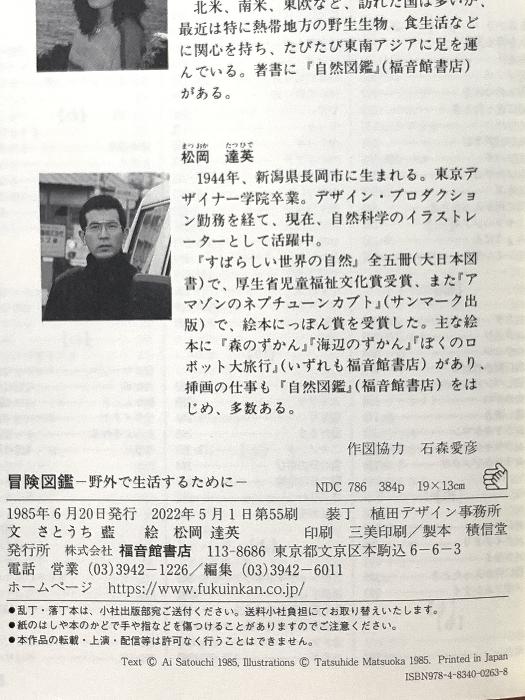 北米、南米、東欧など、訪れた国は多いが、
最近は特に熱帯地方の野生生物、食生活など
に関心を持ち、たびたび東南アジアに足を運
んでいる。著書に『自然図鑑』(福音館書店)
がある。
まつおか たつひで
松岡 達英
1944年、新潟県長岡市に生まれる。東京デ
ザイナー学院卒業。デザイン・プロダクショ
ン勤務を経て、現在、自然科学のイラストレ
ーターとして活躍中。
『すばらしい世界の自然』全五冊(大日本図
書)で、厚生省児童福祉文化賞受賞、また『ア
マゾンのネプチューンカブト』(サンマーク出
版)で、絵本にっぽん賞を受賞した。主な絵
本に『森のずかん』『海辺のずかん』『ぼくのロ
ボット大旅行』(いずれも福音館書店)があり、
挿画の仕事も『自然図鑑』(福音館書店)をは
じめ、多数ある。
作図協力 石森愛彦
冒険図鑑－野外で生活するために－ NDC 786 384p 19×13cm
1985年6月20日発行 2022年5月1日第55刷 装丁 植田デザイン事務所
文 さとうち 藍 絵 松岡 達英 印刷 三美印刷／製本 積信堂
発行所 株式会社 福音館書店 113-8686 東京都文京区本駒込6-6-3
電話 営業(03)3942-1226／編集(03)3942-6011
ホームページ https://www.fukuinkan.co.jp/
●乱丁・落丁本は、小社出版部宛ご送付ください。送料小社負担にてお取り替えいたします。
●紙のはしや本のかどで手や指などを傷つけることがありますのでご注意ください。
●本作品の転載・上演・配信等は許可なく行うことはできません。
Text © Ai Satouchi 1985, Illustrations © Tatsuhide Matsuoka 1985. Printed in Japan
ISBN978-4-8340-0263-8